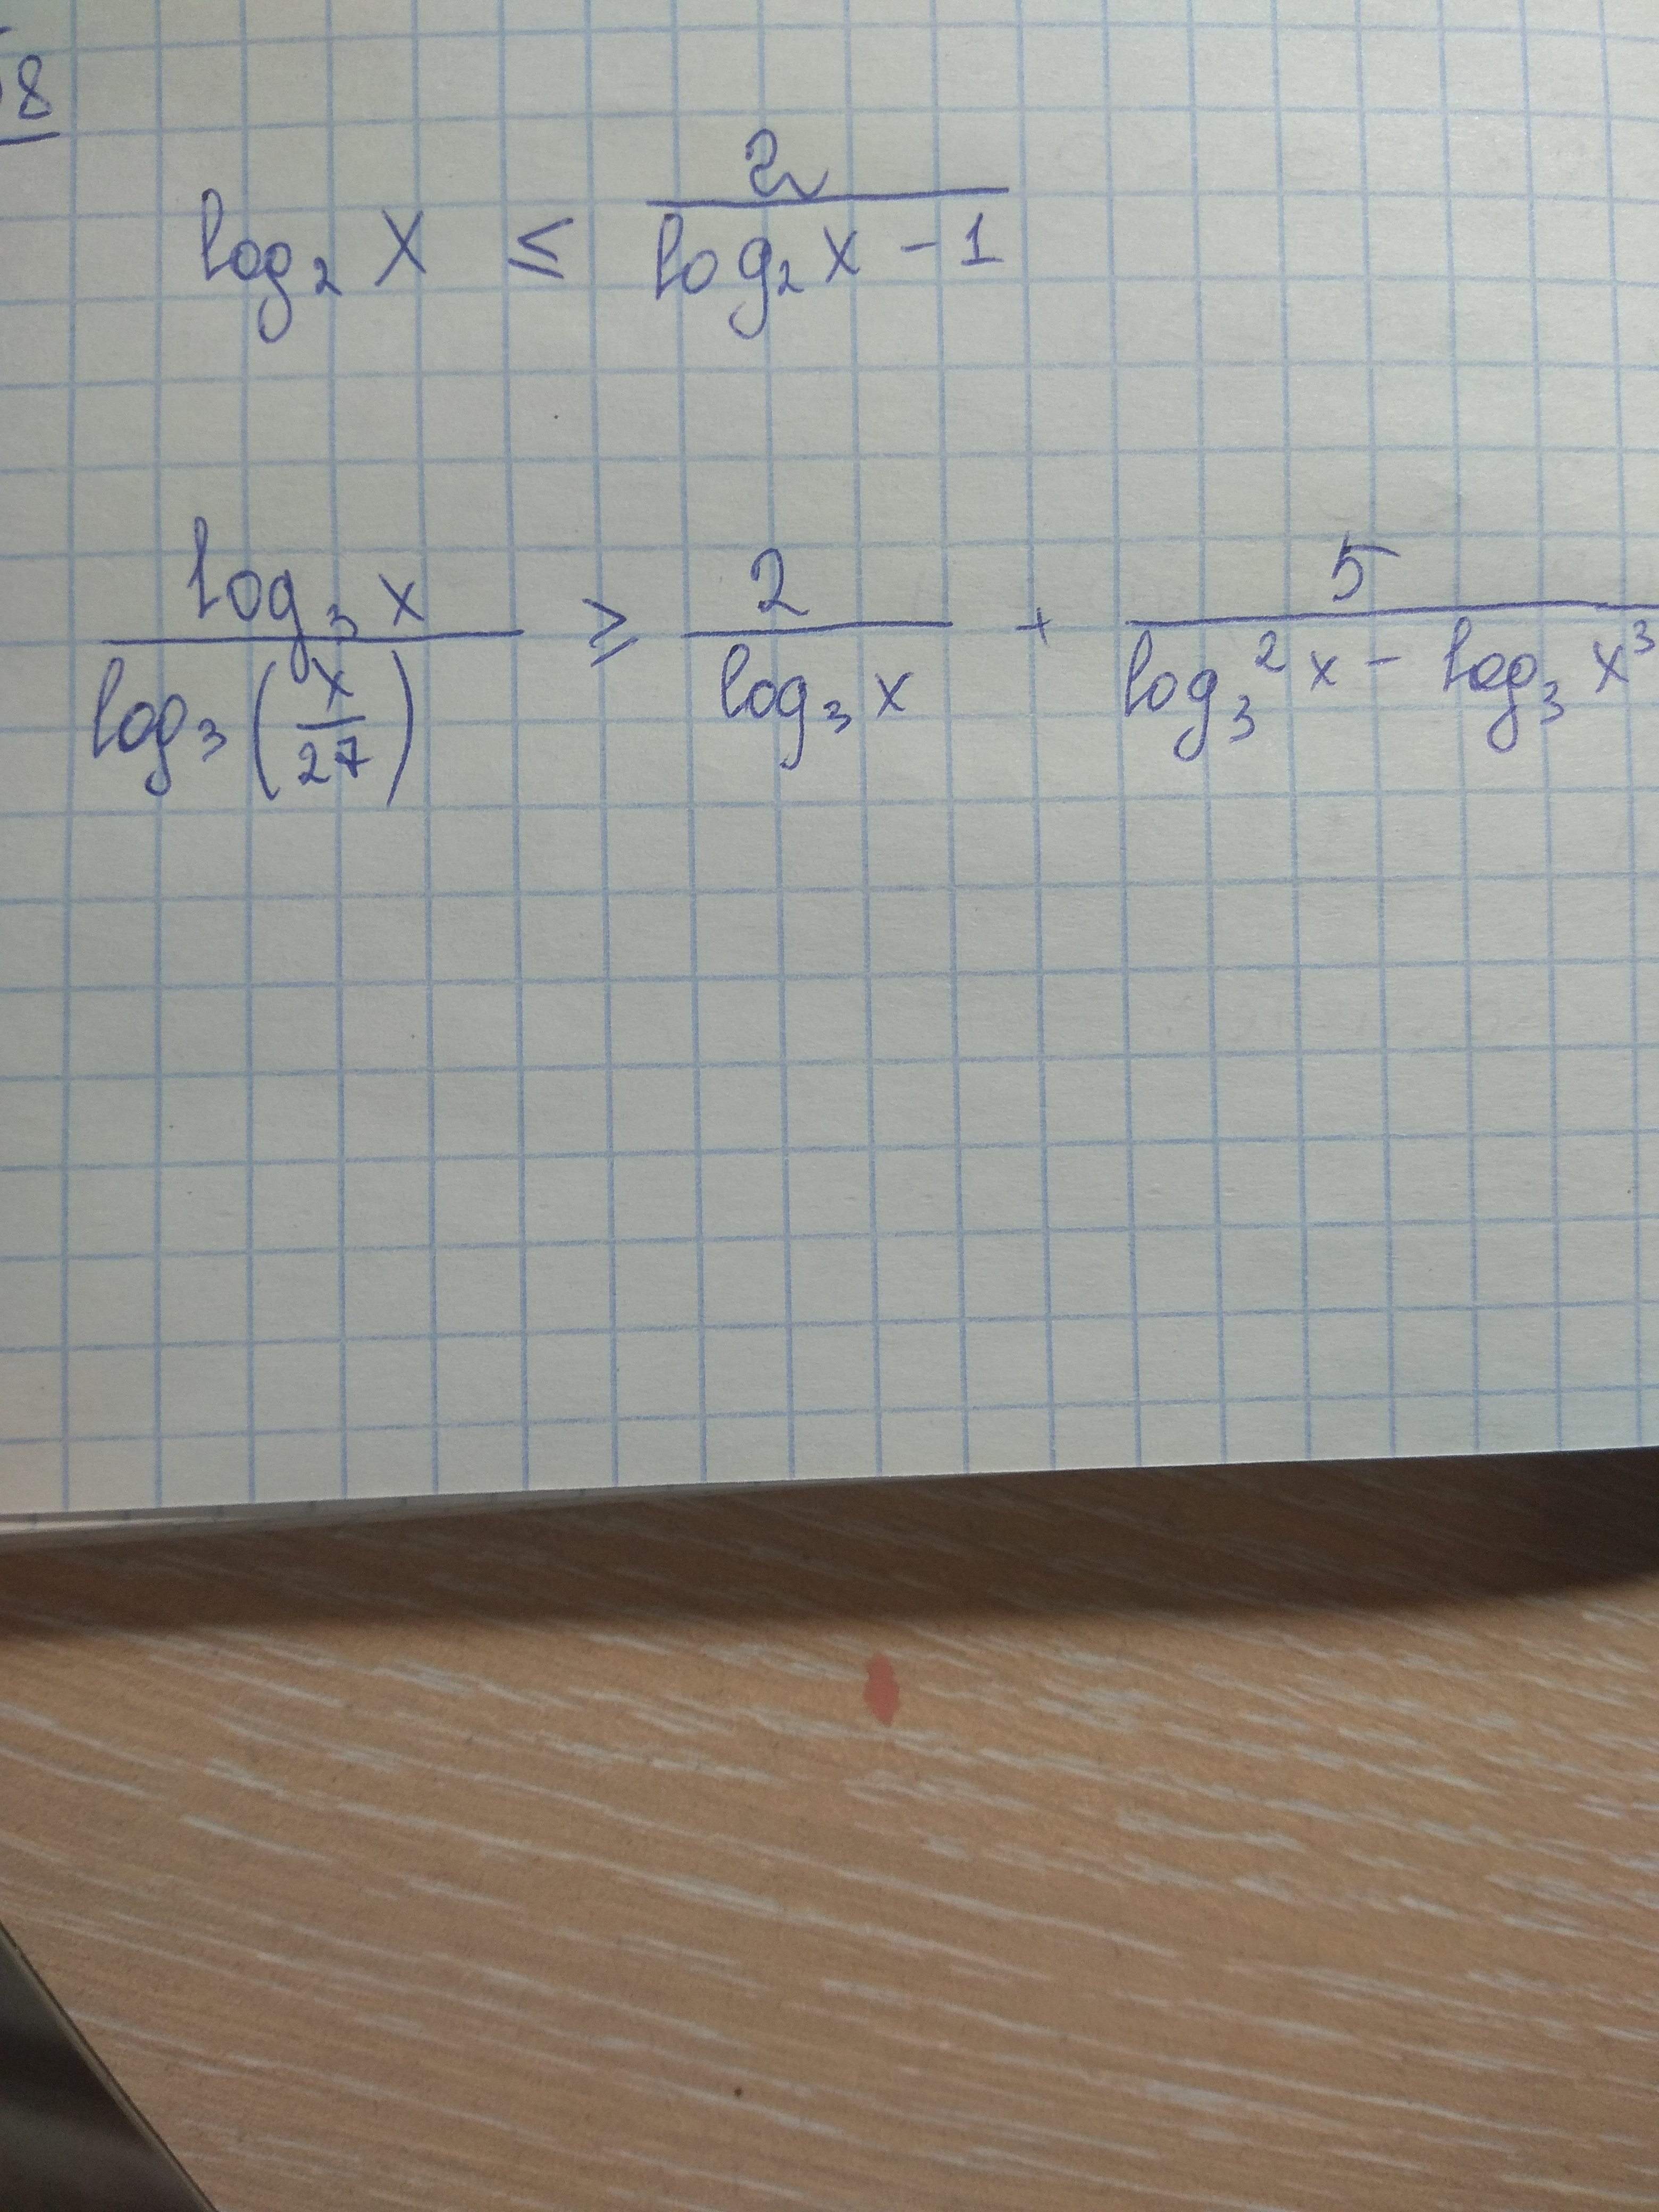 8
log₂ x ≤ 2/(log₂ x − 1)
log₃ x / log₃ (x/27) ≥ 2/(log₃ x) + 5/(log₃² x − log₃ x³)